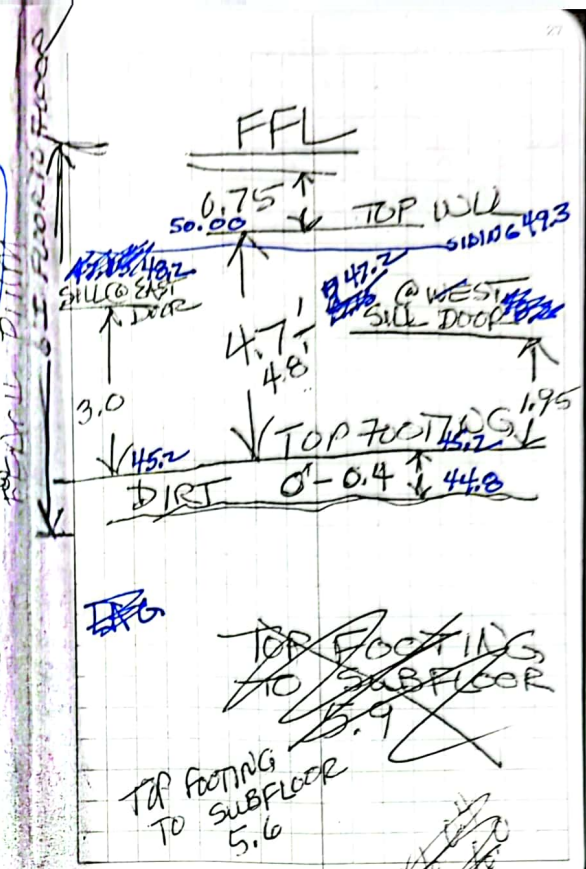 27
FFL
0.75
50.00
TOP WLL
SIDING 49.3
48.2
SILL @ EAST
DOOR
47.2
@ WEST
SILL DOOR
4.7'
4.8'
3.0
1.95
TOP FOOTING
45.2
45.2
DIRT 0' - 0.4
44.8
TOP FOOTING
TO SUBFLOOR
5.9
TOP FOOTING
TO SUBFLOOR
5.6